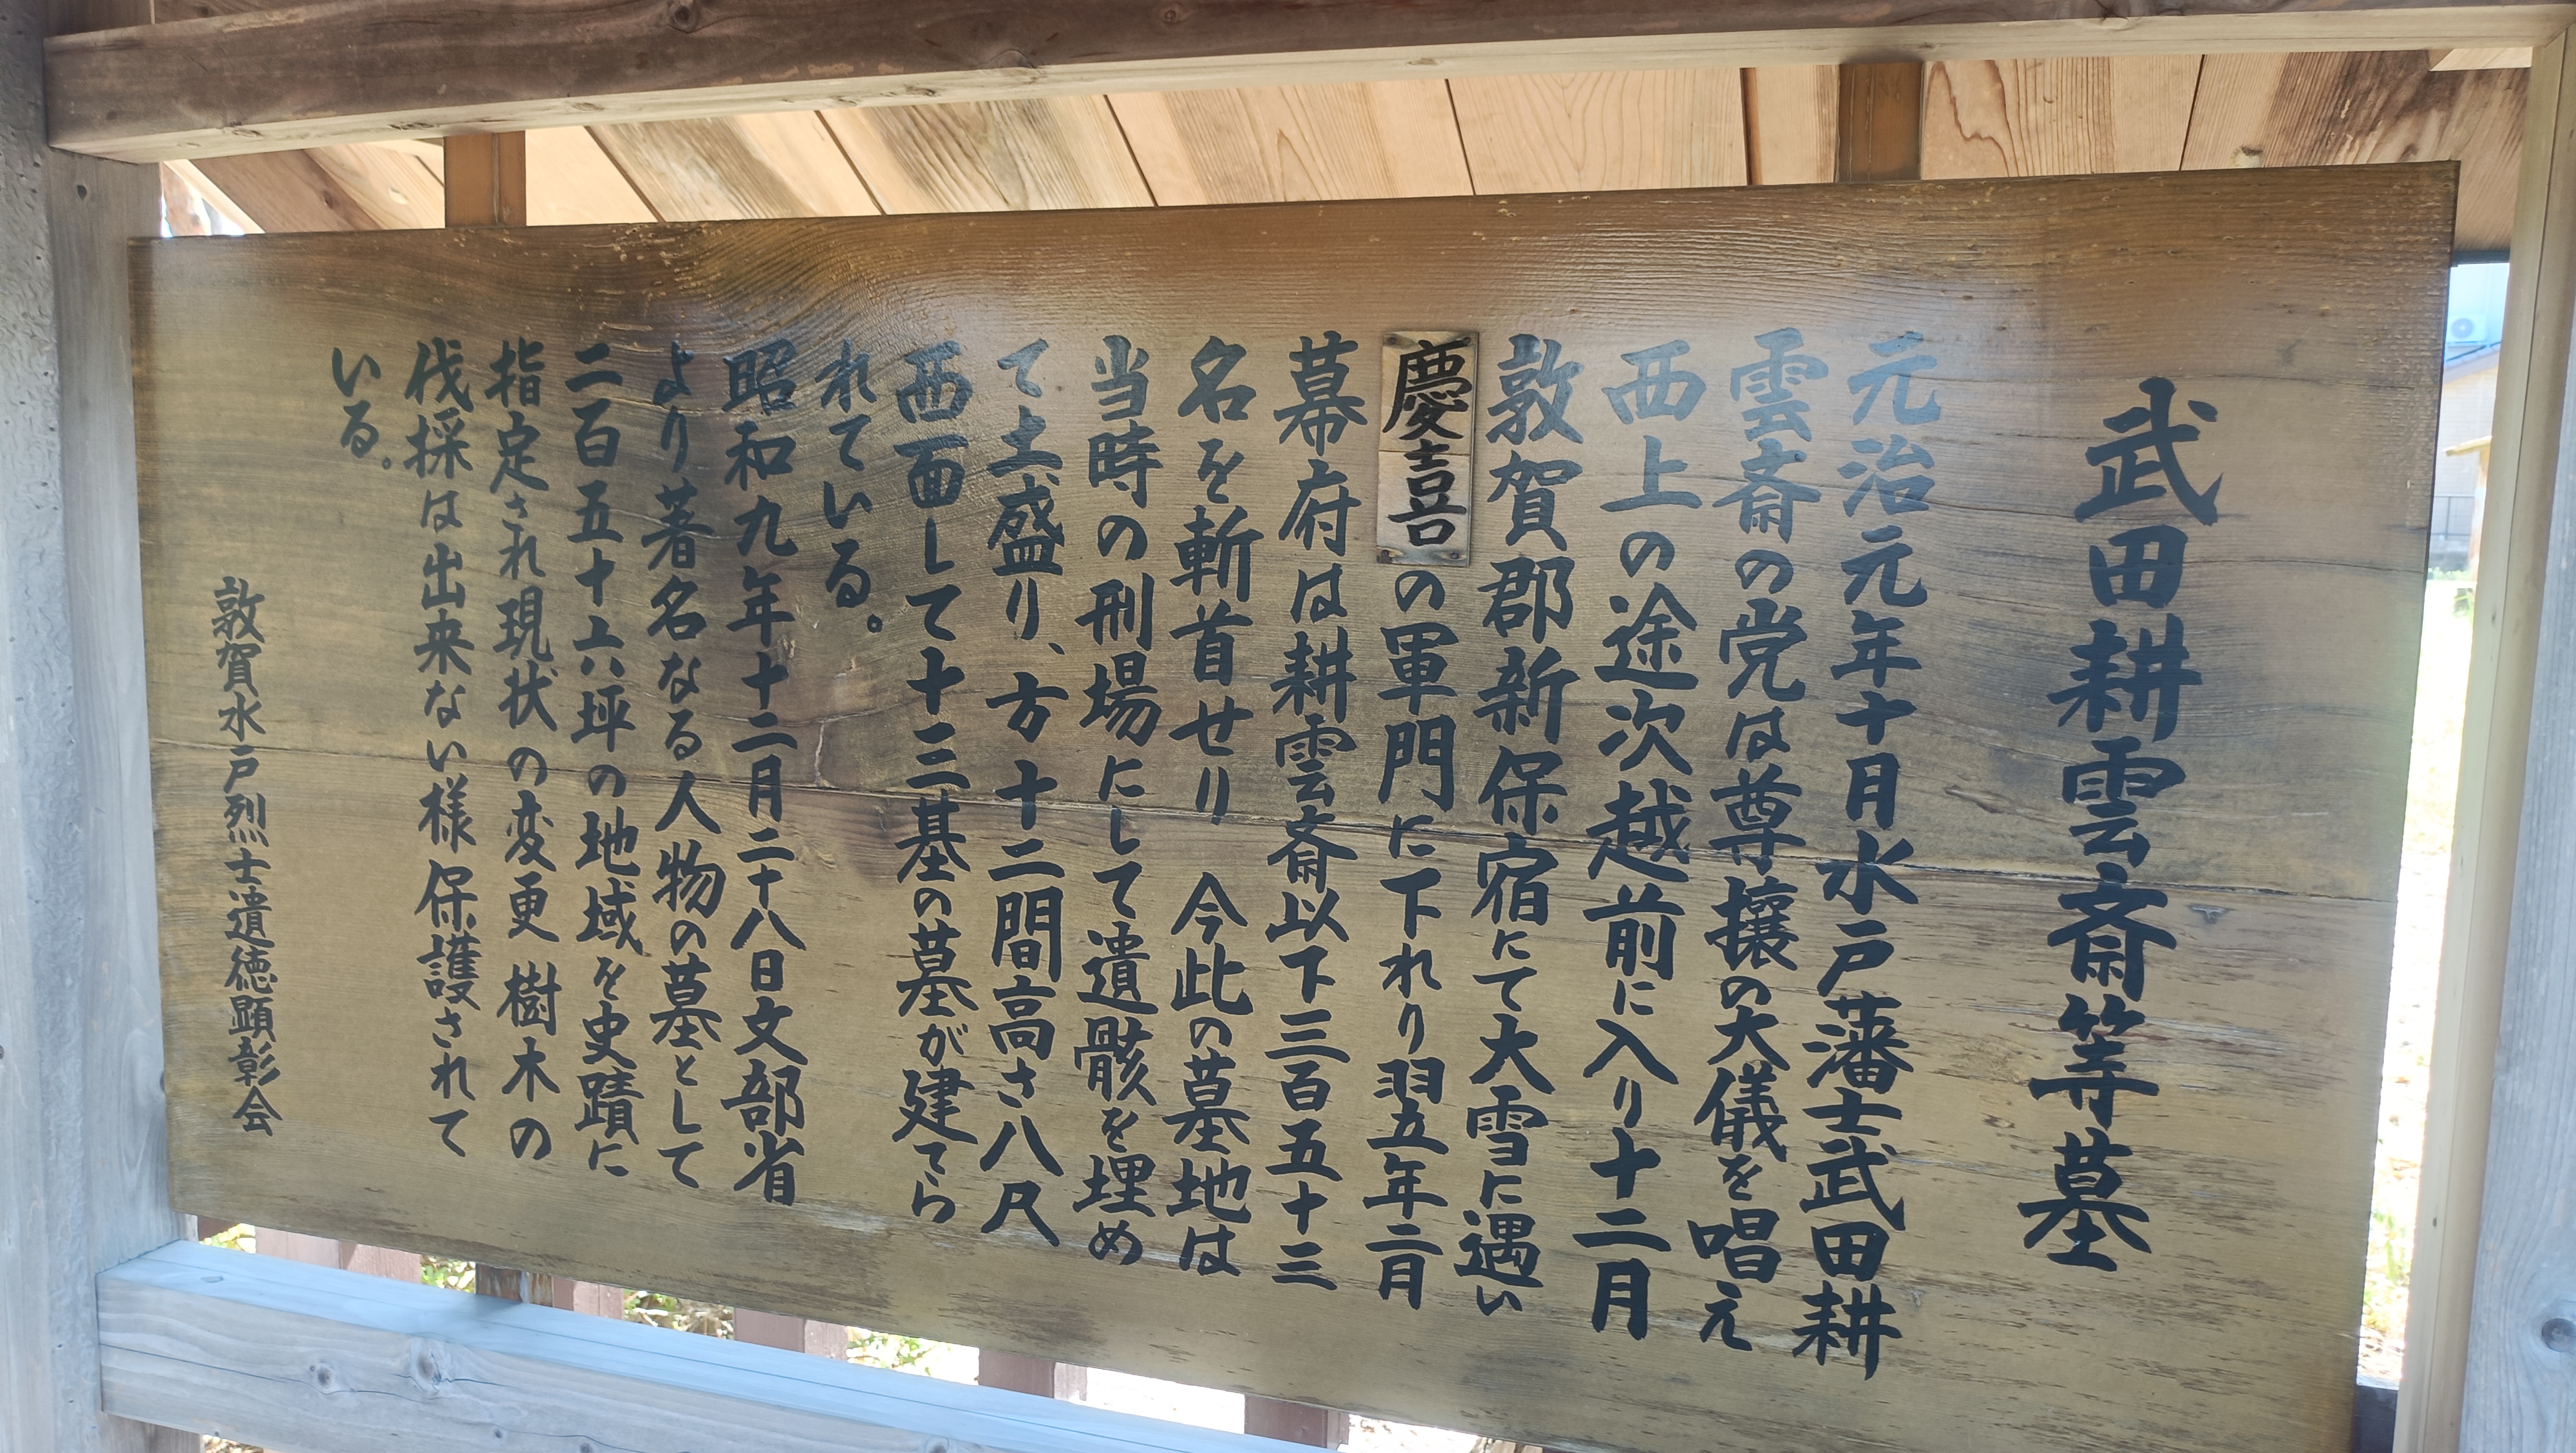 武田耕雲斎等墓
元治元年十月水戸藩士武田耕
雲斎の党は尊攘の大儀を唱え
西上の途次越前に入り十二月
敦賀郡新保宿にて大雪に遇い
慶喜の軍門に下れり翌年二月
幕府は耕雲斎以下三百五十三
名を斬首せり 今此の墓地は
当時の刑場にして遺骸を埋め
て土盛り、方十二間高さ八尺
西面して十三基の墓が建てら
れている。
昭和九年十二月二十八日文部省
より著名なる人物の墓として
二百五十六坪の地域を史蹟に
指定され現状の変更樹木の
伐採は出来ない様保護されて
いる。
敦賀水戸烈士遺徳顕彰会